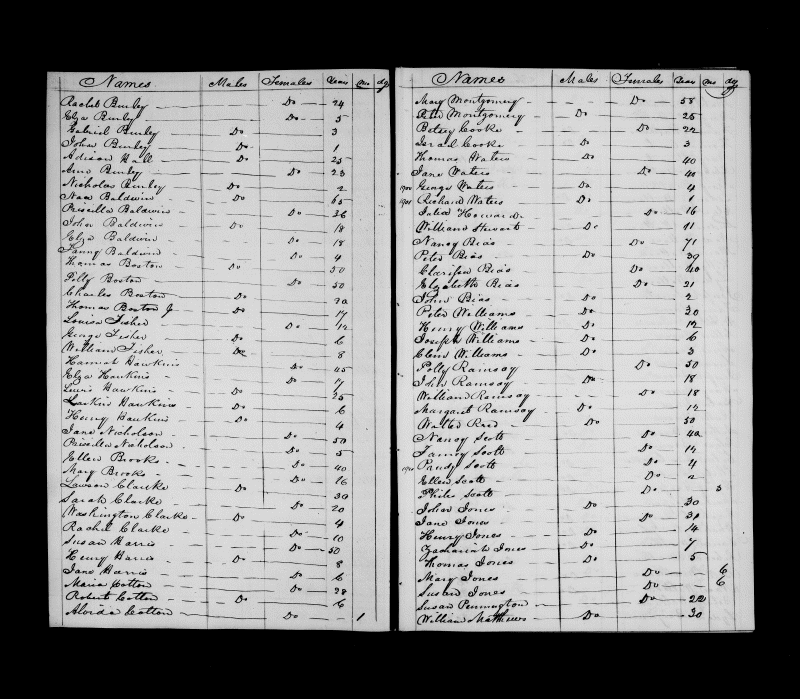 Names Males Females Years mo dy
Rachel Burley Do 24
Elza Burley Do 5
Gabriel Burley Do 3
John Burley Do 1
Adison Hall Do 25
Ann Burley Do 23
Nicholas Burley Do 2
Nace Baldwin Do 65
Priscilla Baldwin Do 36
John Baldwin Do 18
Elza Baldwin Do 18
Fanny Baldwin Do 4
Thomas Boston Do 50
Polly Boston 50
Charles Boston Do 20
Thomas Boston Jr Do 17
Louisa Fisher Do 12
George Fisher Do 6
William Fisher Do 8
Hannah Hawkins Do 45
Elza Hawkins Do 17
Lewis Hawkins Do 25
Larkins Hawkins Do 6
Henry Hawkins Do 4
Jane Nicholson Do 50
Priscilla Nicholson 5
Ellen Brooks Do 40
Mary Brooks Do 16
Lawson Clarke Do 30
Sarah Clarke Do 20
Washington Clarke Do 4
Rachel Clarke Do 10
Susan Harris Do 50
Henry Harris Do 8
Jane Harris Do 6
Maria Cotton Do 28
Robert Cotton Do 6
Cotton Do 1
Names Males Females Years mo dy
Mary Montgomery Do 58
Montgomery Do 25
Betsey Cooke Do 22
Israel Cooke Do 3
Thomas Waters Do 40
Jane Waters Do 40
George Waters Do 4
Richard Waters Do 1
Howard Do 16
William Stewart Do 11
Nancy Bias Do 71
Peter Bias Do 39
Clarissa Bias Do 40
Elizabeth Bias Do 21
John Bias Do 2
Peter Williams Do 30
Henry Williams Do 12
Joseph Williams Do 6
Clem Williams Do 3
Polly Ramsay Do 50
John Ramsay Do 18
William Ramsay Do 18
Margaret Ramsay Do 12
Walter Reed Do 50
Nancy Scott Do 40
Fanny Scott Do 14
Prudy Scott Do 4
Ellen Scott Do 2
Philis Scott Do 3
John Jones Do 30
Jane Jones Do 30
Henry Jones Do 14
Zachariah Jones Do 7
Thomas Jones Do 5
Mary Jones Do 6
Susan Jones Do 6
Susan Pennington Do 22
William Mathews Do 30